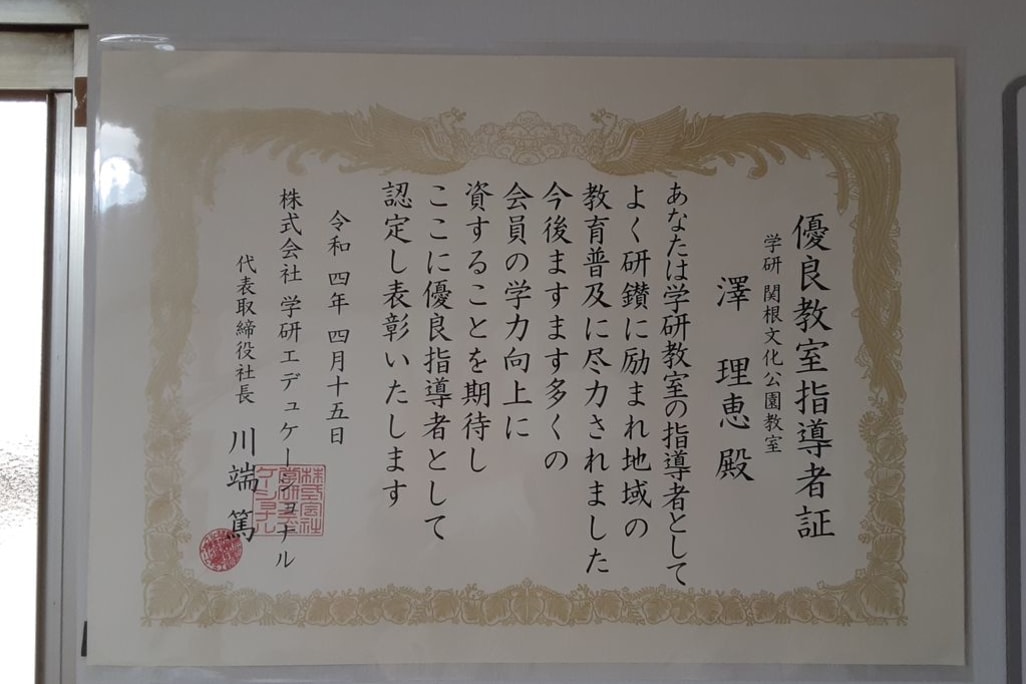 優良教室指導者証
学研 関根文化公園教室
澤 理恵 殿
あなたは学研教室の指導者として
よく研鑽に励まれ地域の
教育普及に尽力されました
今後ますます多くの
会員の学力向上に
資することを期待し
ここに優良指導者として
認定し表彰いたします
令和 四年 四月十五日
株式会社 学研エデュケーショナル
代表取締役社長 川端 篤